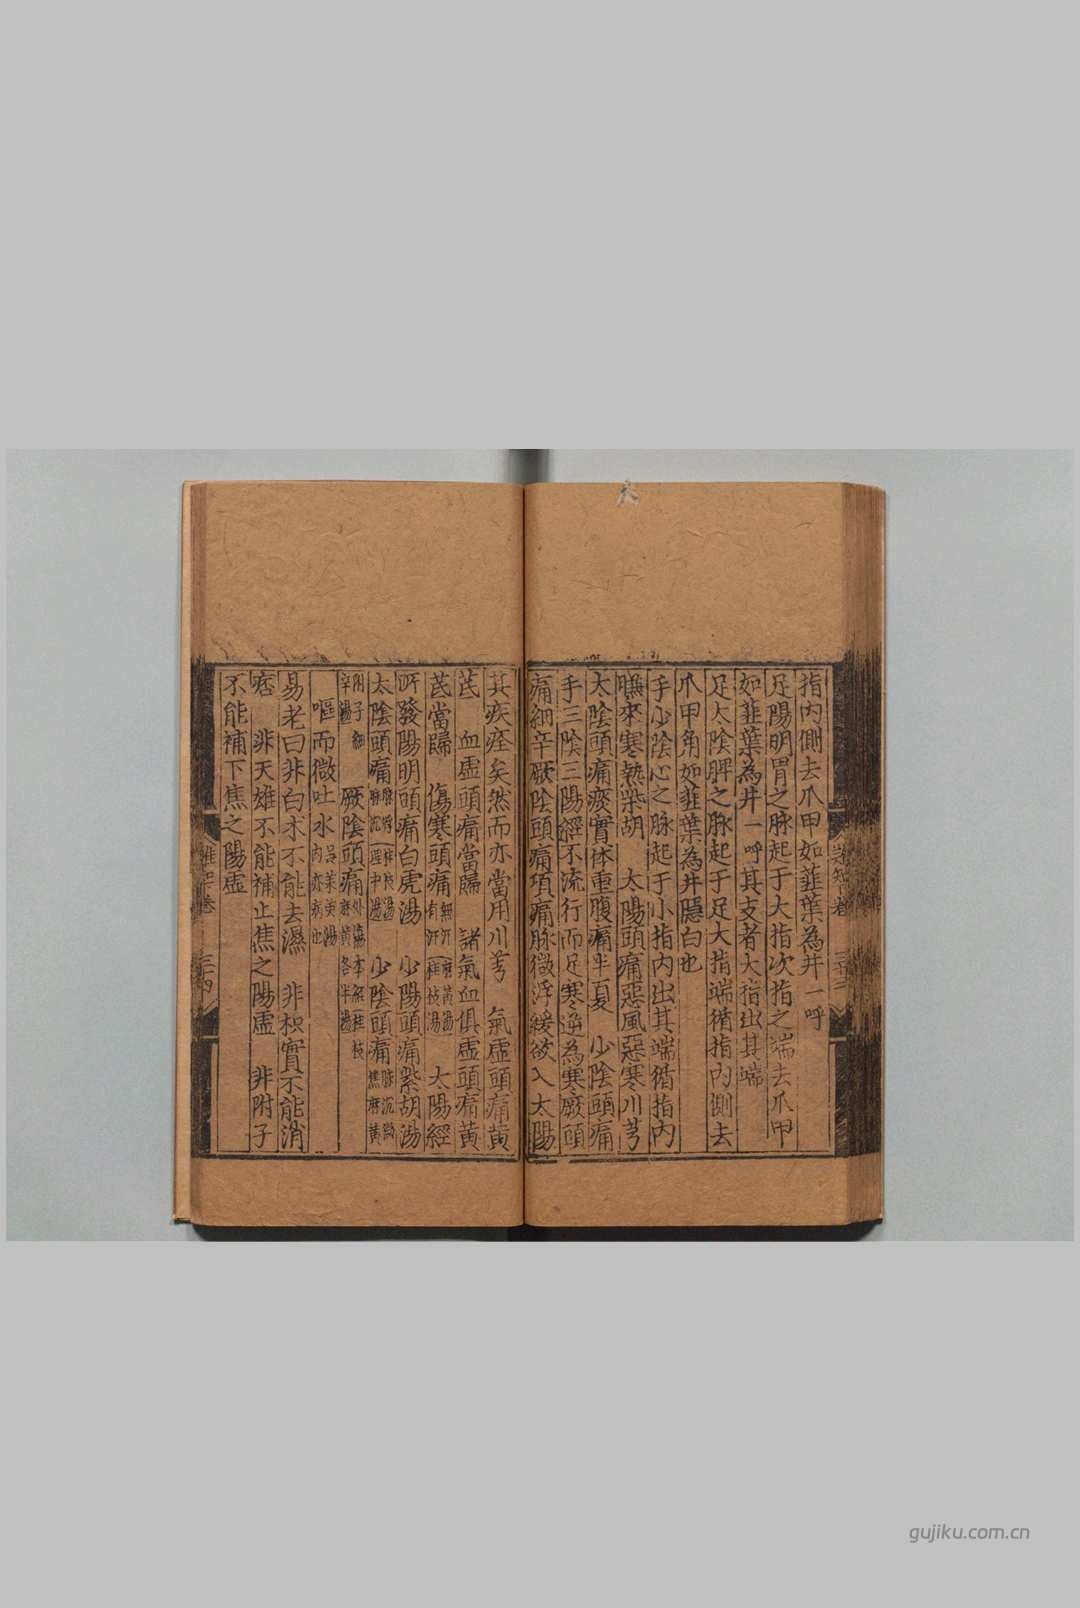 指內側去爪甲如韮葉為井一呼
足陽明胃之脉起于大指次指之端去爪甲
如韮葉為井一呼其支者大指出其端
足太陰脾之脉起于足大指端循指內側去
爪甲角如韮葉為井隱白也
手少陰心之脉起于小指內出其端循指內
來寒熱柴胡　太陽頭痛惡風惡寒川芎
太陰頭痛痰實体重腹痛半夏　少陰頭痛
手三陰三陽經不流行而足寒逆為寒厥頭
痛細辛厥陰頭痛項痛脉微浮緩欲入太陽
其疾痊矣然而亦當用川芎　氣虛頭痛黃
芪　血虛頭痛當歸　諸氣血俱虛頭痛黃
芪當歸　傷寒頭痛無汗麻黃湯有汗桂枝湯　太陽經
汗發陽明頭痛白虎湯　少陽頭痛柴胡湯
太陰頭痛脉浮桂枝湯脉沉理中湯　少陰頭痛脉沉麻黃
附子細辛湯　厥陰頭痛外傷本經桂枝麻黃各半湯
嘔而微吐水吳茱萸湯內亦病也
易老曰非白术不能去濕　非枳實不能消
痞　非天雄不能補上焦之陽虛　非附子
不能補下焦之陽虛
卷
三十四
gujiku.com.cn